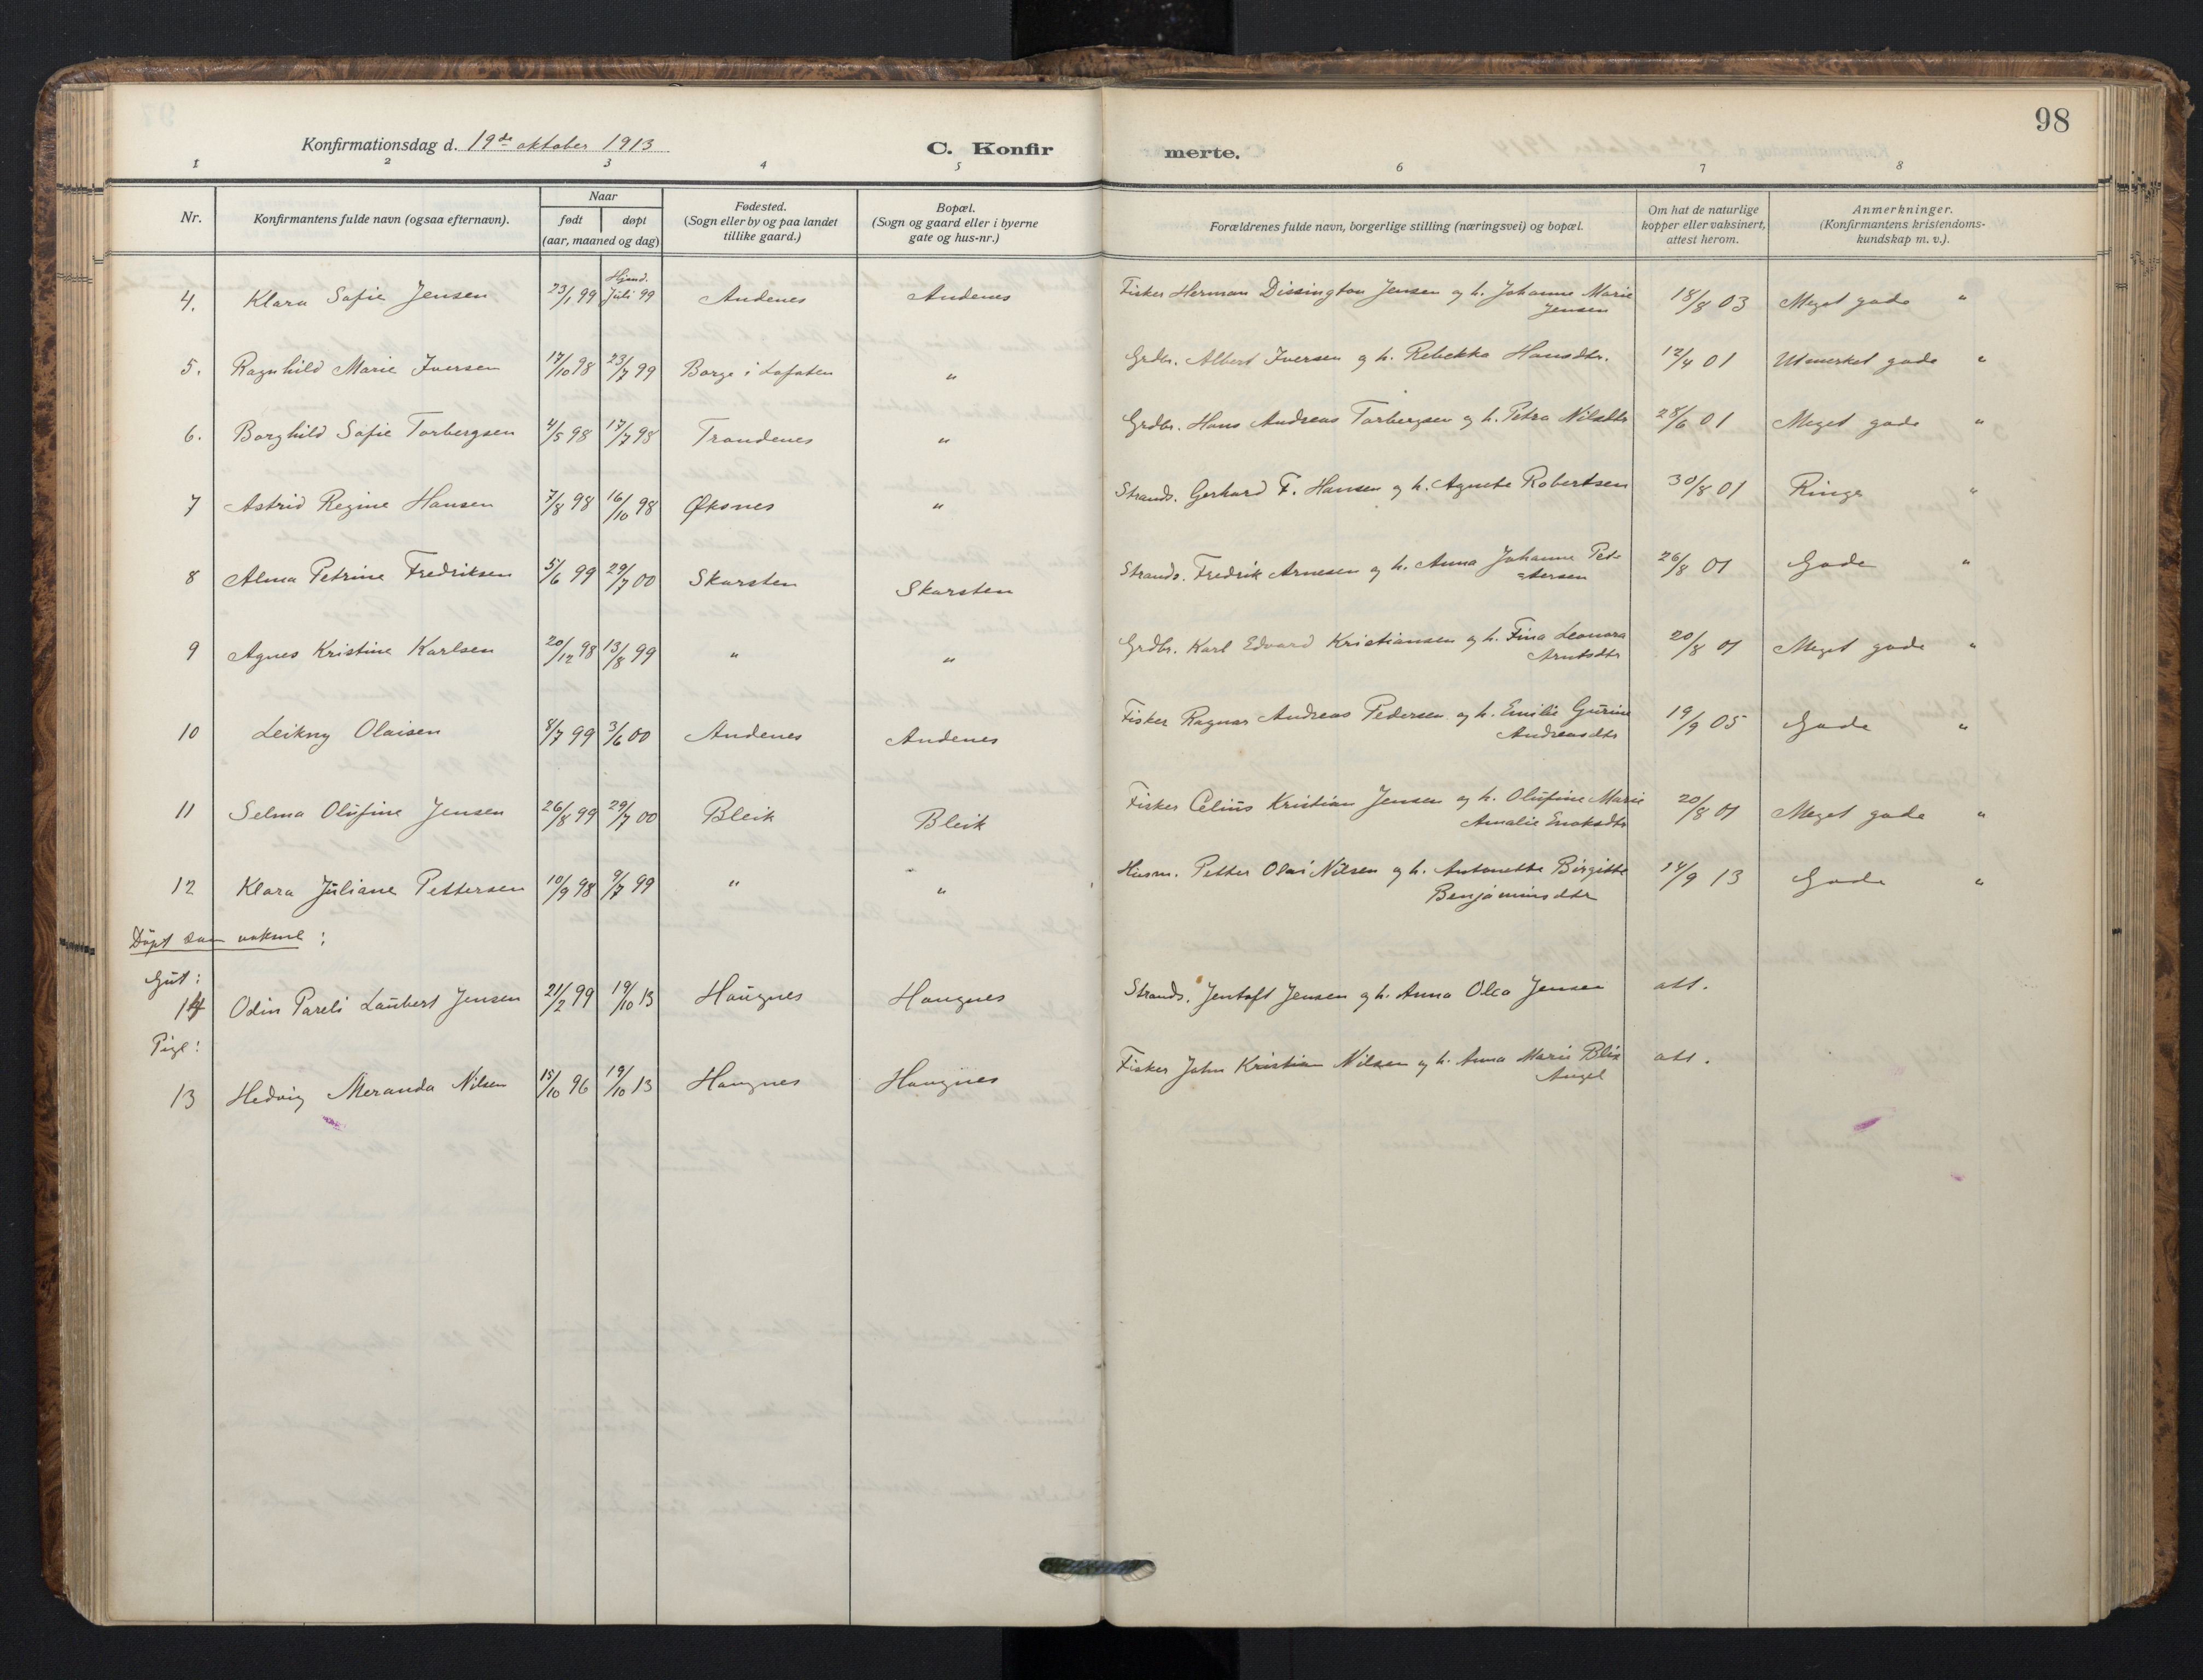 98
Konfirmationsdag d. 19de oktober 1913
C. Konfirmerte.
1 2 3 4 5 6 7 8
Nr.
Konfirmantens fulde navn (ogsaa efternavn).
Naar
født døpt
(aar, maaned og dag)
Fødested.
(Sogn eller by og paa landet
tillike gaard.)
Bopæl.
(Sogn og gaard eller i byerne
gate og hus-nr.)
Forældrenes fulde navn, borgerlige stilling (næringsvei) og bopæl.
Om hat de naturlige
kopper eller vaksinert,
attest herom.
Anmerkninger.
(Konfirmantens kristendoms-
kundskap m. v.).
4. Klara Sofie Jensen 23/1 99 Hjemd. Juli 99 Andenes Andenes Fisker Herman Dissington Jensen og h. Johanne Marie
Jensen 18/8 03 Meget gode "
5. Ragnhild Marie Iversen 17/10 98 23/7 99 Borge i Lofoten " Grdbr. Albert Iversen og h. Rebekka Hansdtr. 12/4 01 Utmerket gode "
6. Borghild Sofie Torbergsen 4/5 98 17/7 98 Trondenes " Grdbr. Hans Andreas Torbergsen og h. Petra Nilsdtr 28/6 01 Meget gode "
7 Astrid Regine Hansen 7/8 98 16/10 98 Øksnes " Strands. Gerhard F. Hansen og h. Agnete Robertsen 30/8 01 Ringe "
8 Alma Petrine Fredriksen 5/6 99 29/7 00 Skarsten Skarsten Strands. Fredrik Arnesen og h. Anna Johanne Pet-
tersen 26/8 01 Gode "
9 Agnes Kristine Karlsen 20/12 98 13/8 99 " " Grdbr. Karl Edvard Kristiansen og h. Fina Leonora
Arntsdtr 20/8 01 Meget gode "
10 Leikny Olaisen 8/7 99 3/6 00 Andenes Andenes Fisker Ragnar Andreas Pedersen og h. Emilie Gurine
Andreasdtr 19/9 05 Gode "
11 Selma Olufine Jensen 26/8 99 29/7 00 Bleik Bleik Fisker Celius Kristian Jensen og h. Olufine Marie
Amalie Enoksdtr 20/8 01 Meget gode "
12 Klara Juliane Pettersen 10/9 98 9/7 99 " " Husm. Petter Olai Nilsen og h. Antonette Birgitte
Benjaminsdtr 14/9 13 Gode "
Döpt som voksne:
Gut:
14 Odin Pareli Laubert Jensen 21/2 99 19/10 13 Haugnes Haugnes Strands. Jentoft Jensen og h. Anna Olea Jensen att.
Pige:
13 Hedvig Meranda Nilsen 15/10 96 19/10 13 Haugnes Haugnes Fisker John Kristian Nilsen og h. Anna Marie Blix
Angel att.